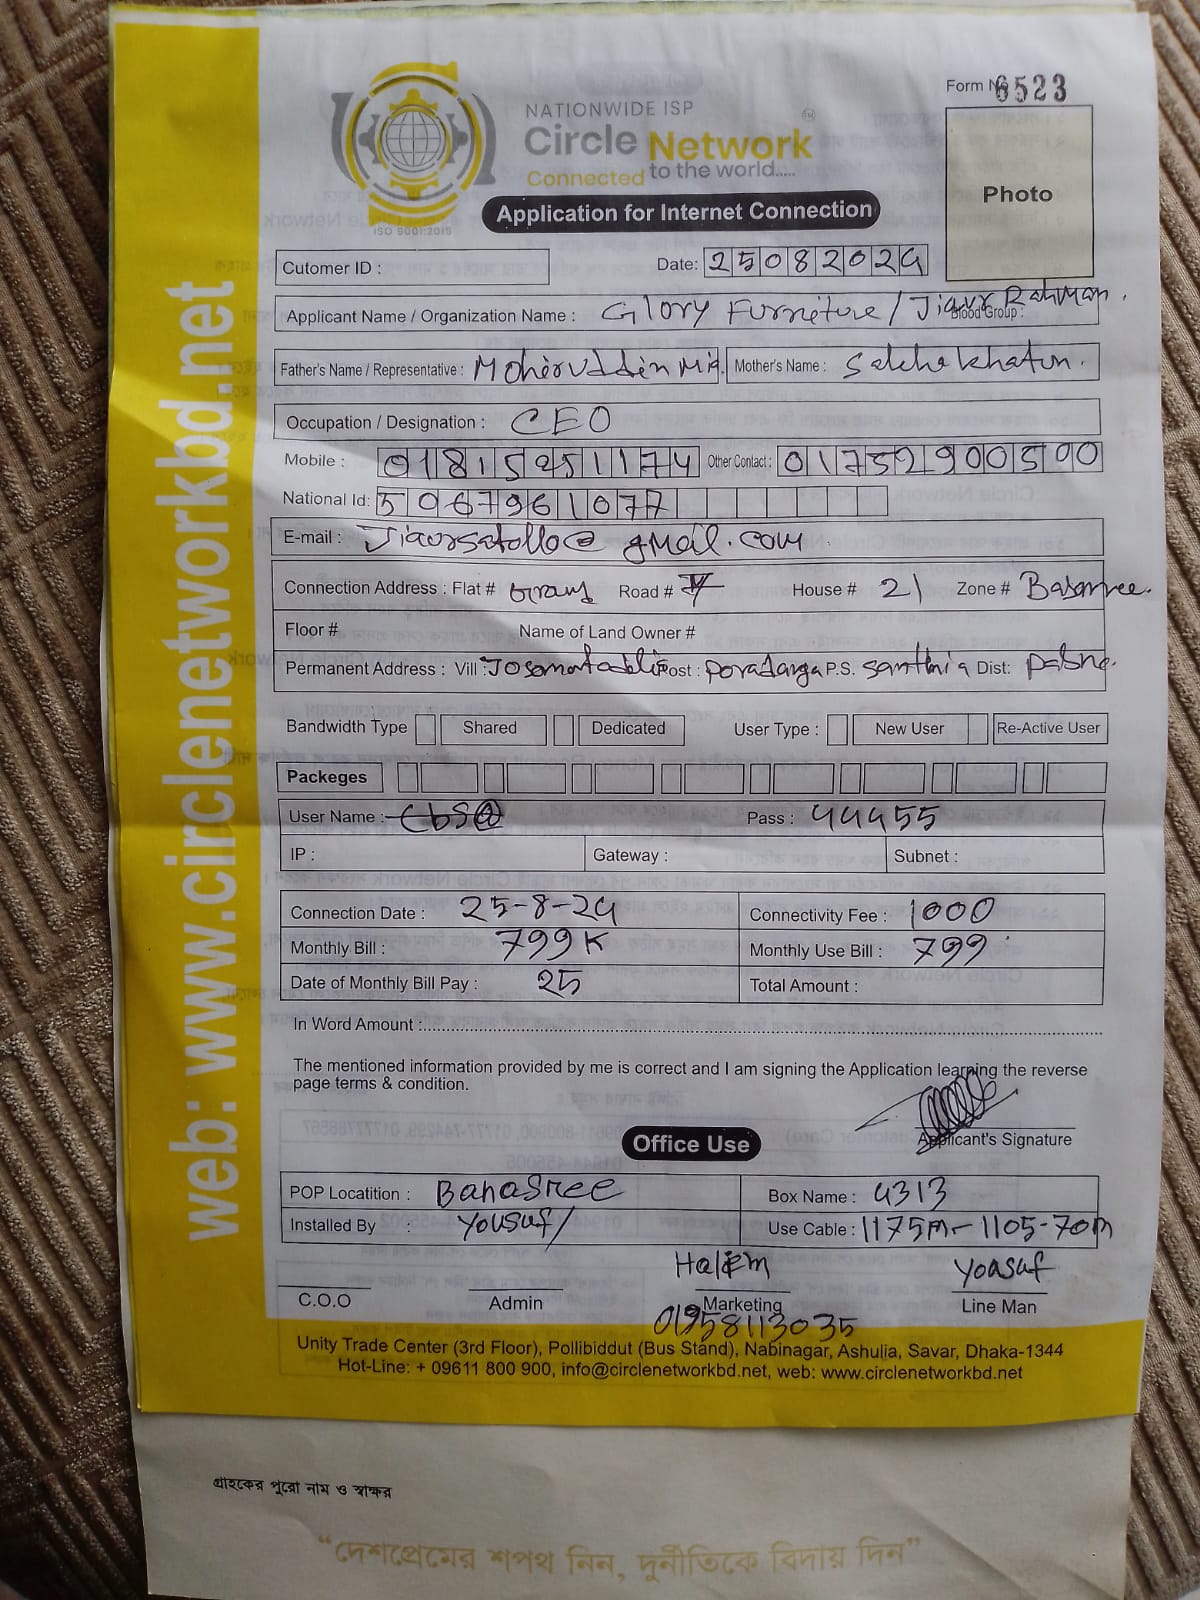 Form No 6523
NATIONWIDE ISP
Circle Network
TM
Connected to the world.....
ISO 9001:2015
Application for Internet Connection
Photo
Cutomer ID :
Date: 25082024
Applicant Name / Organization Name : Glory Furniture / Jiaur Rahman.
Blood Group :
Father's Name / Representative : Moheruddin Mia. Mother's Name : Salehakhatun.
Occupation / Designation : CEO
Mobile : 01815251174 Other Contact : 01752900500
National Id: 5067961077
E-mail : Jiaursatollo@gmail.com
Connection Address : Flat # Road # House # 21 Zone #
Floor # Name of Land Owner #
Permanent Address : Vill : Post : P.S. Santhia Dist: Pabna.
Bandwidth Type Shared Dedicated User Type : New User Re-Active User
Packeges
User Name : Cbs@ Pass : 44455
IP : Gateway : Subnet :
Connection Date : 25-8-24 Connectivity Fee : 1000
Monthly Bill : 799 Monthly Use Bill : 799
Date of Monthly Bill Pay : 25 Total Amount :
In Word Amount :
The mentioned information provided by me is correct and I am signing the Application learning the reverse
page terms & condition.
Applicant's Signature
Office Use
POP Locatition : Banasree Box Name : 4313
Installed By : Yousuf / Use Cable : 1175m - 1105-70m
Halim Yousuf
C.O.O Admin Marketing Line Man
01958113035
Unity Trade Center (3rd Floor), Pollibiddut (Bus Stand), Nabinagar, Ashulia, Savar, Dhaka-1344
Hot-Line: + 09611 800 900, info@circlenetworkbd.net, web: www.circlenetworkbd.net
web: www.circlenetworkbd.net
গ্রাহকের পুরো নাম ও স্বাক্ষর
“দেশপ্রেমের শপথ নিন, দুর্নীতিকে বিদায় দিন”